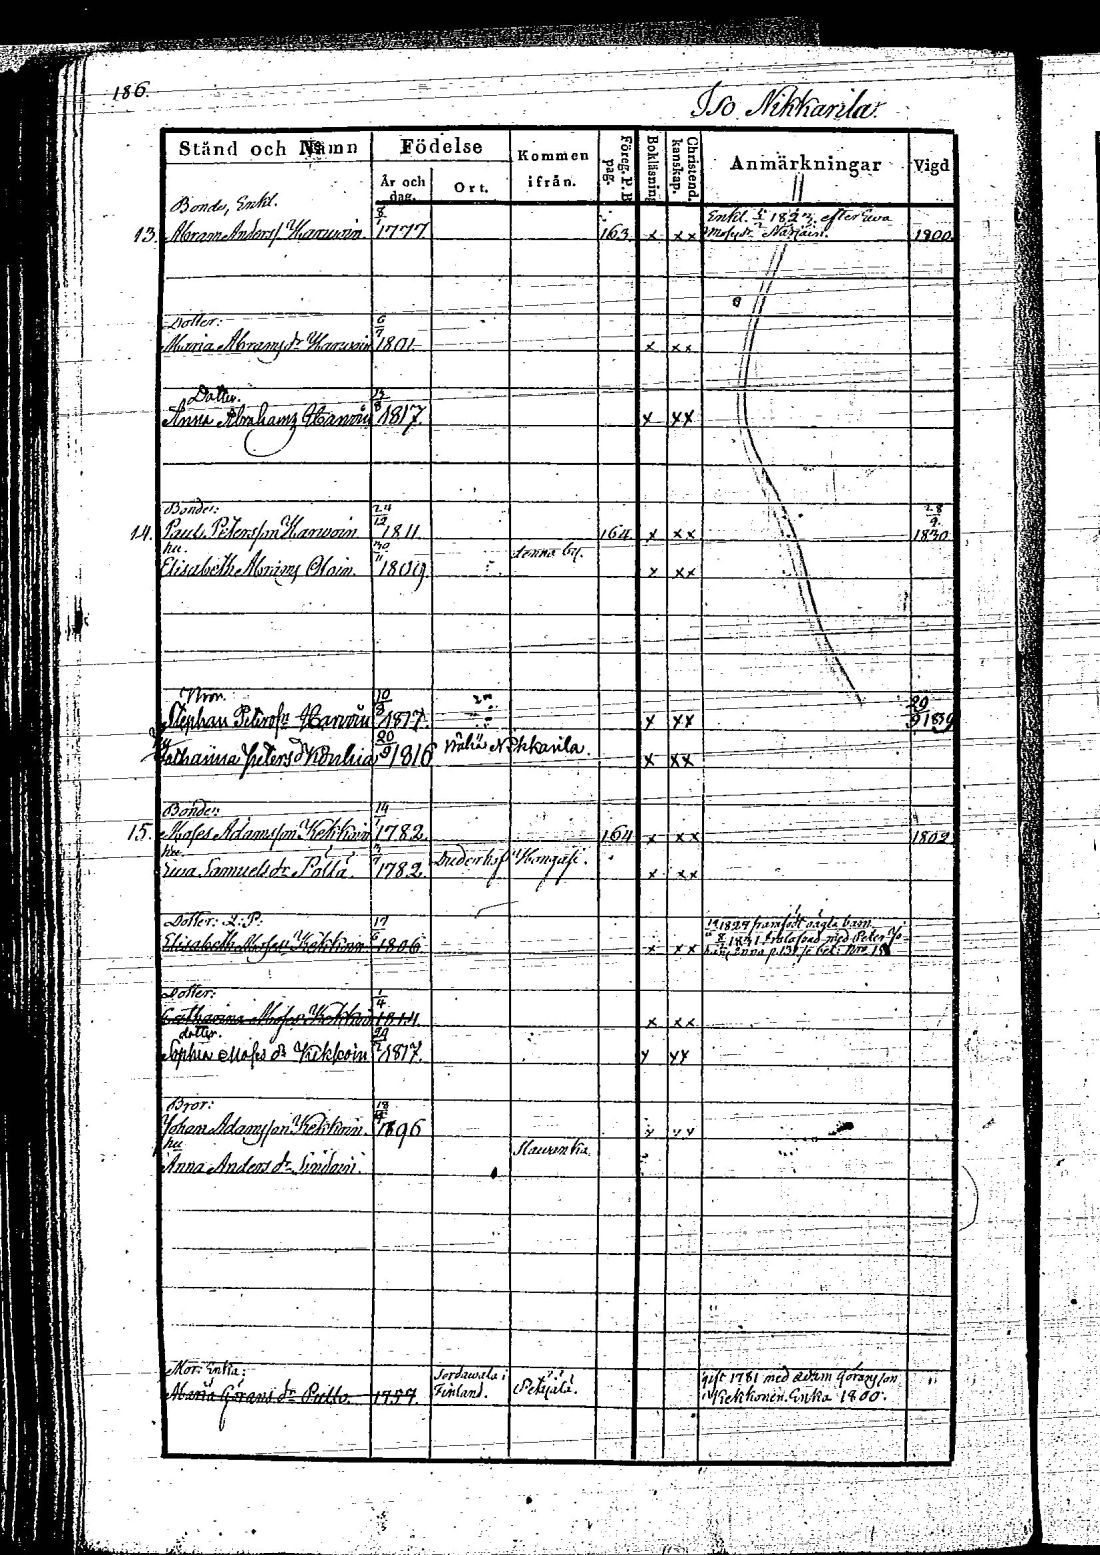 186.
Iso Nikkarila.
Stånd och Namn
Födelse
Kommen ifrån.
Föreg. P. B. pag.
Bokläsning
Christend. kanskap.
Anmärkningar
Vigd
År och dag.
Ort.
Bonde, Enkl.
13. Abram Anders Karwoin 1777 163 x xx Enkl. 1823 efter Ewa 1800
Dotter:
Maria Abrams dr Karwoin 6/7 1801 x xx
Dotter.
Anna Abrahams Karvoin 1817. x xx
Bonde:
14. Paul Petersson Karwoin 24/12 1811 164 x xx 28/9 1830
hu.
Elisabeth Abrams Oloin 30/11 1809 denna by. x xx
Bror.
Stephan Peters Karvoin 10/3 1817. x xx 29/9 1839
Catharina Peters d 20/9 1816 Wälia Nikkarila. x xx
Bonde:
15. Moses Adamsson Kekkoin 14/1 1782 164 x xx 1802
hu.
Ewa Samuels dr Pöllä. 3/7 1782 Duderhof Kongäsi. x xx
Dotter: L: P:
Elisabeth Moses Kekkoin 17/6 1806 x xx 1829 framfödt oägta barn
1831 trolofvad med Peter
Dotter:
Catharina Moses Kekkoin 1/4 1814 x xx
dotter.
Sophia Moses dr Kekkoin 29 1817. x xx
Bror:
Johan Adamsson Kekkoin 18 1796 x xx
hu
Anna Anders dr
Mor: Enka:
Maria Görans dr Pulli 1757. Sordawala i Finland. gift 1781 med Adam Göransson
Kekkonen. Enka 1800.